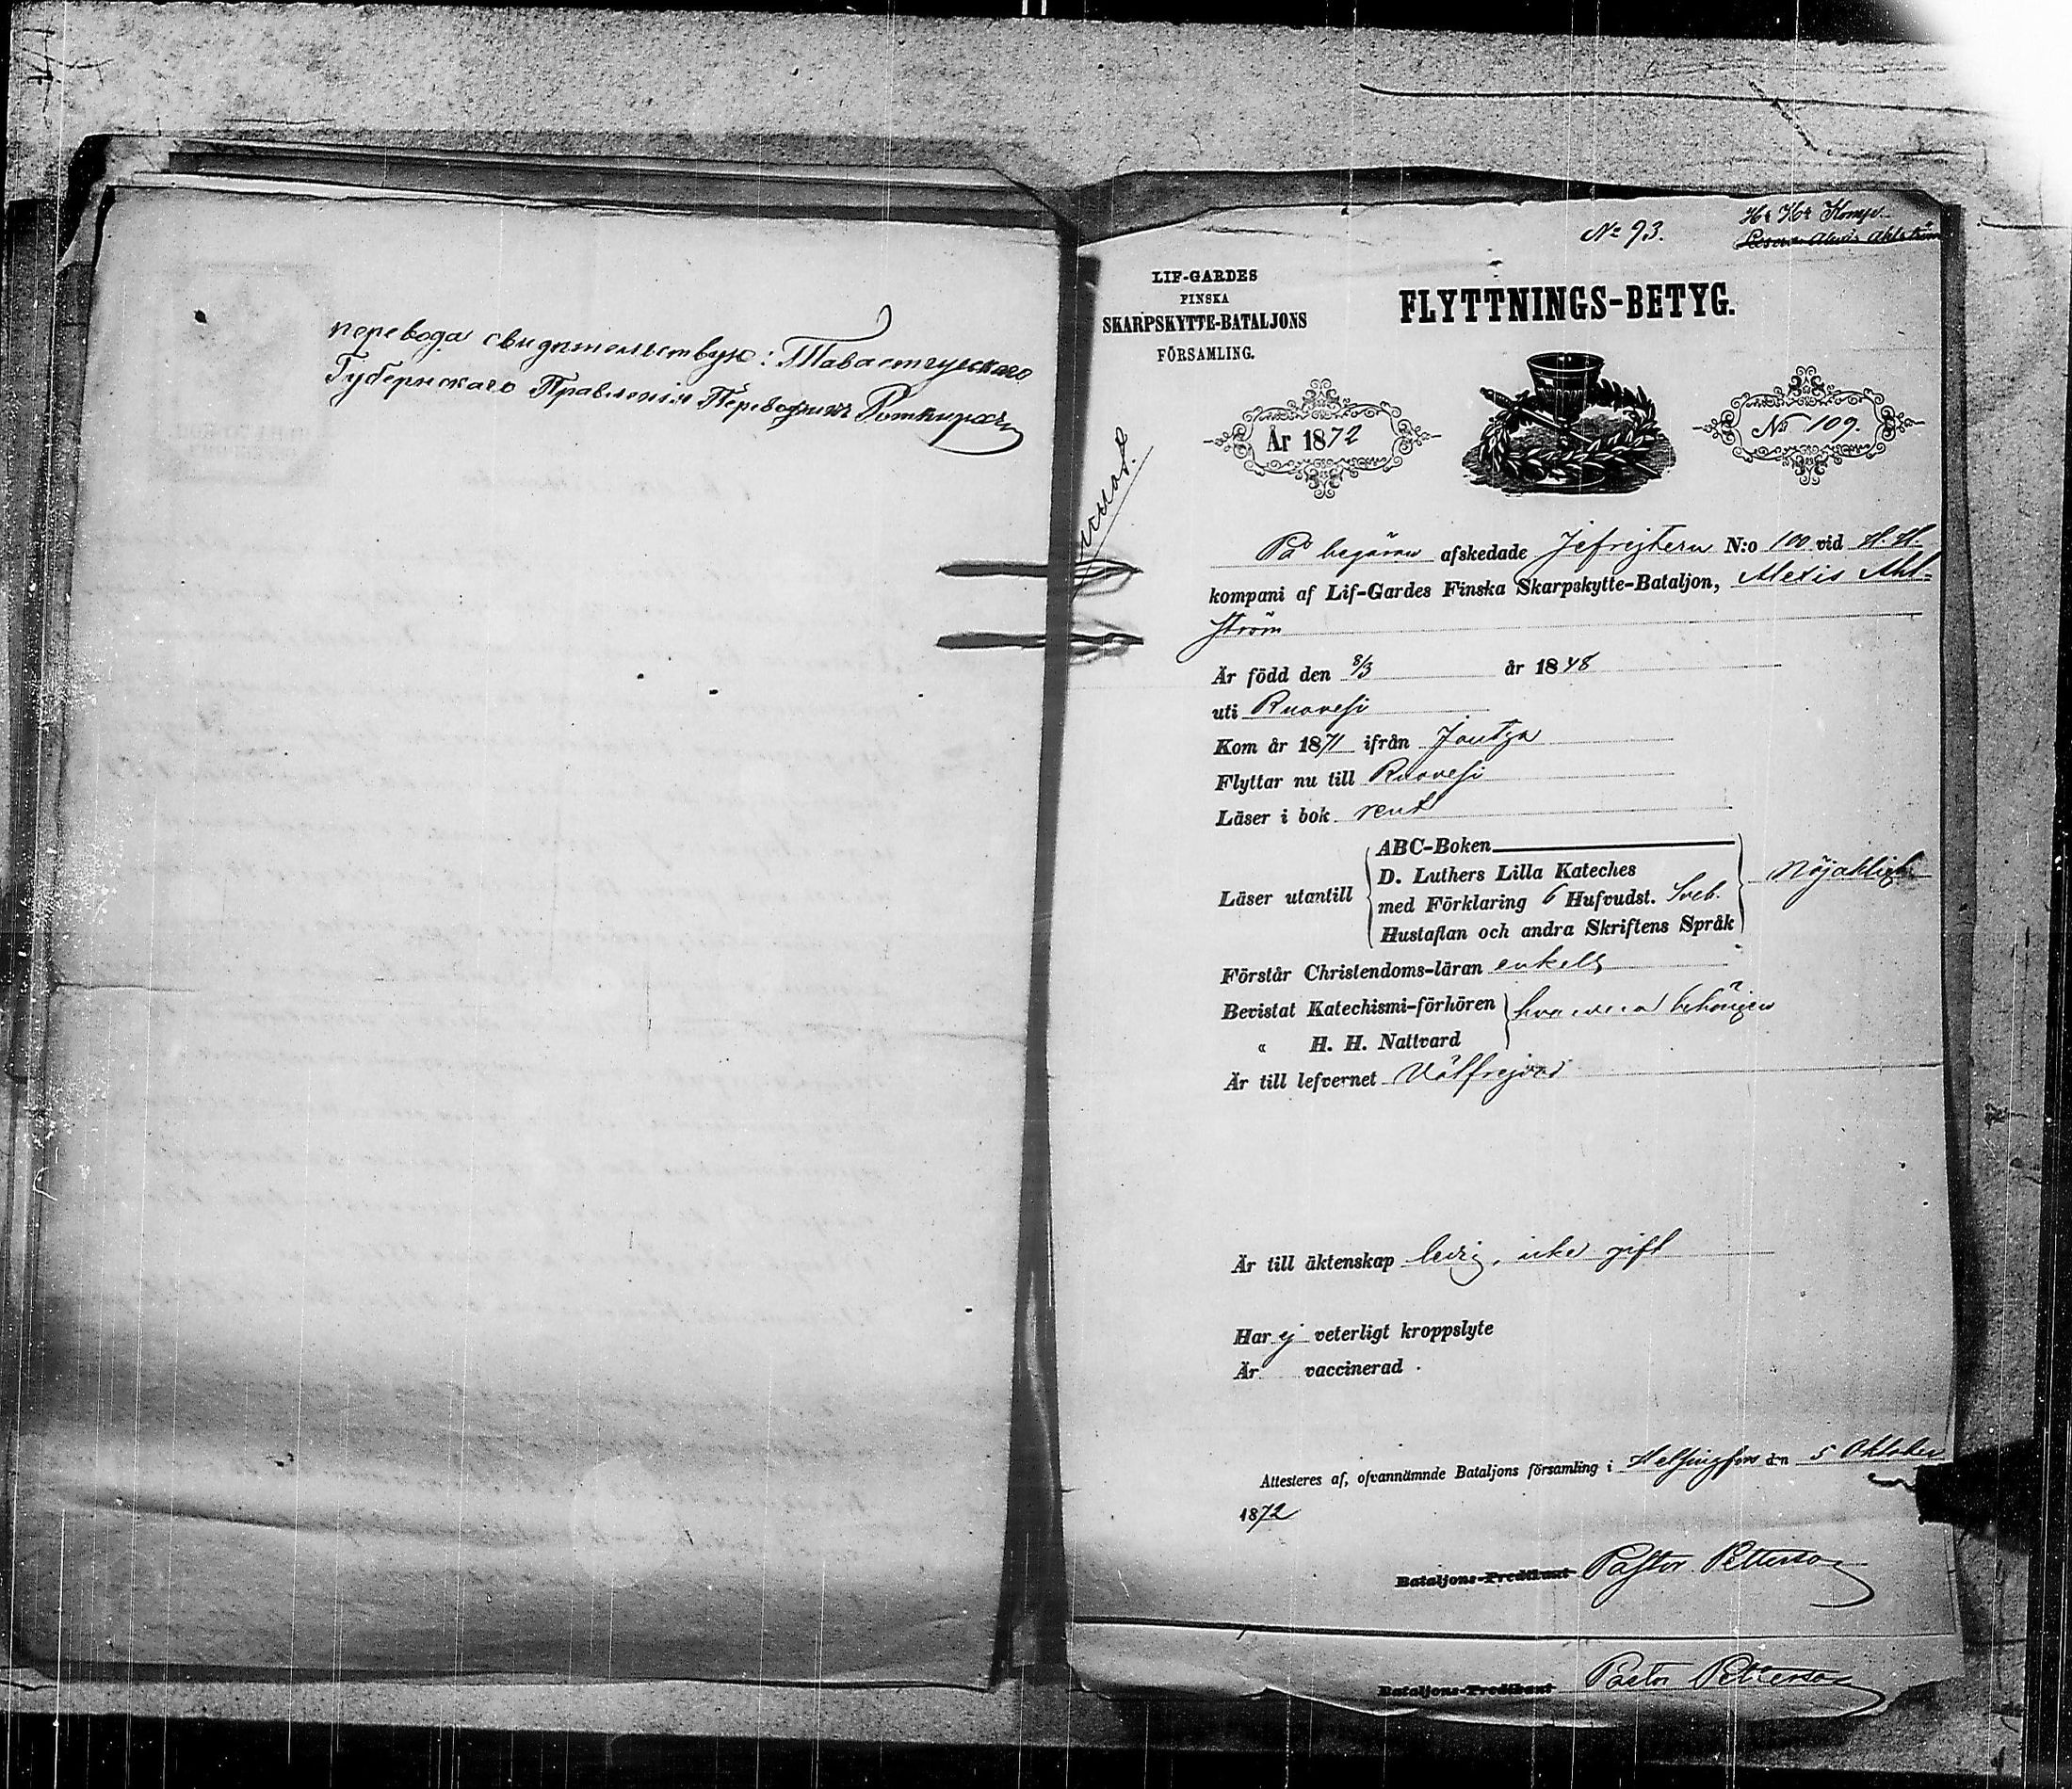 перевода свидѣтельствую: Тавастгускаго
Губернскаго Правленія Переводчикъ Роткирхъ
No 93.
LIF-GARDES
FINSKA
SKARPSKYTTE-BATALJONS
FÖRSAMLING.
FLYTTNINGS-BETYG.
År 1872
No 109.
På begäran afskedade Jefrejtern N:o 100 vid H. H.
kompani af Lif-Gardes Finska Skarpskytte-Bataljon, Alexis Ahl-
ström
Är född den 8/3 år 1848
uti Ruovesi
Kom år 1871 ifrån
Flyttar nu till Ruovesi
Läser i bok rent
Läser utantill
ABC-Boken
D. Luthers Lilla Kateches
med Förklaring 6 Hufvudst. Sveb.
Hustaflan och andra Skriftens Språk
Nöjaktigt
Förstår Christendoms-läran enkelt
Bevistat Katechismi-förhören
" H. H. Nattvard
behörigen
Är till lefvernet Välfrejdad
Är till äktenskap ledig, icke gift
Har ej veterligt kroppslyte
Är vaccinerad
Attesteres af, ofvannämnde Bataljons församling i Helsingfors den 5 Oktober
1872
Bataljons-Predikant Pastor Petterson
Bataljons-Predikant Pastor Petterson